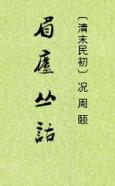 〔清末民初〕况周颐
眉廬丛話